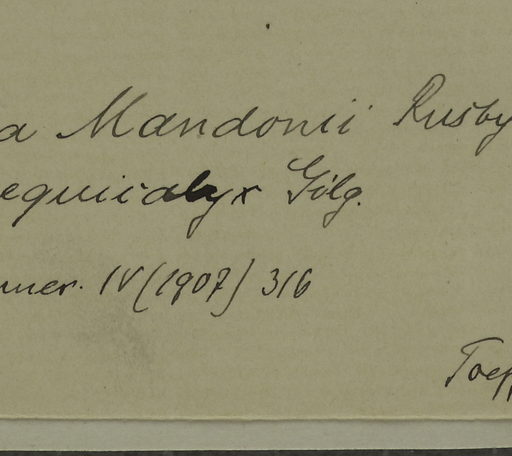 a Mandonii Rusby
equicalyx Gilg.
mer. IV (1907) 316
Toepf